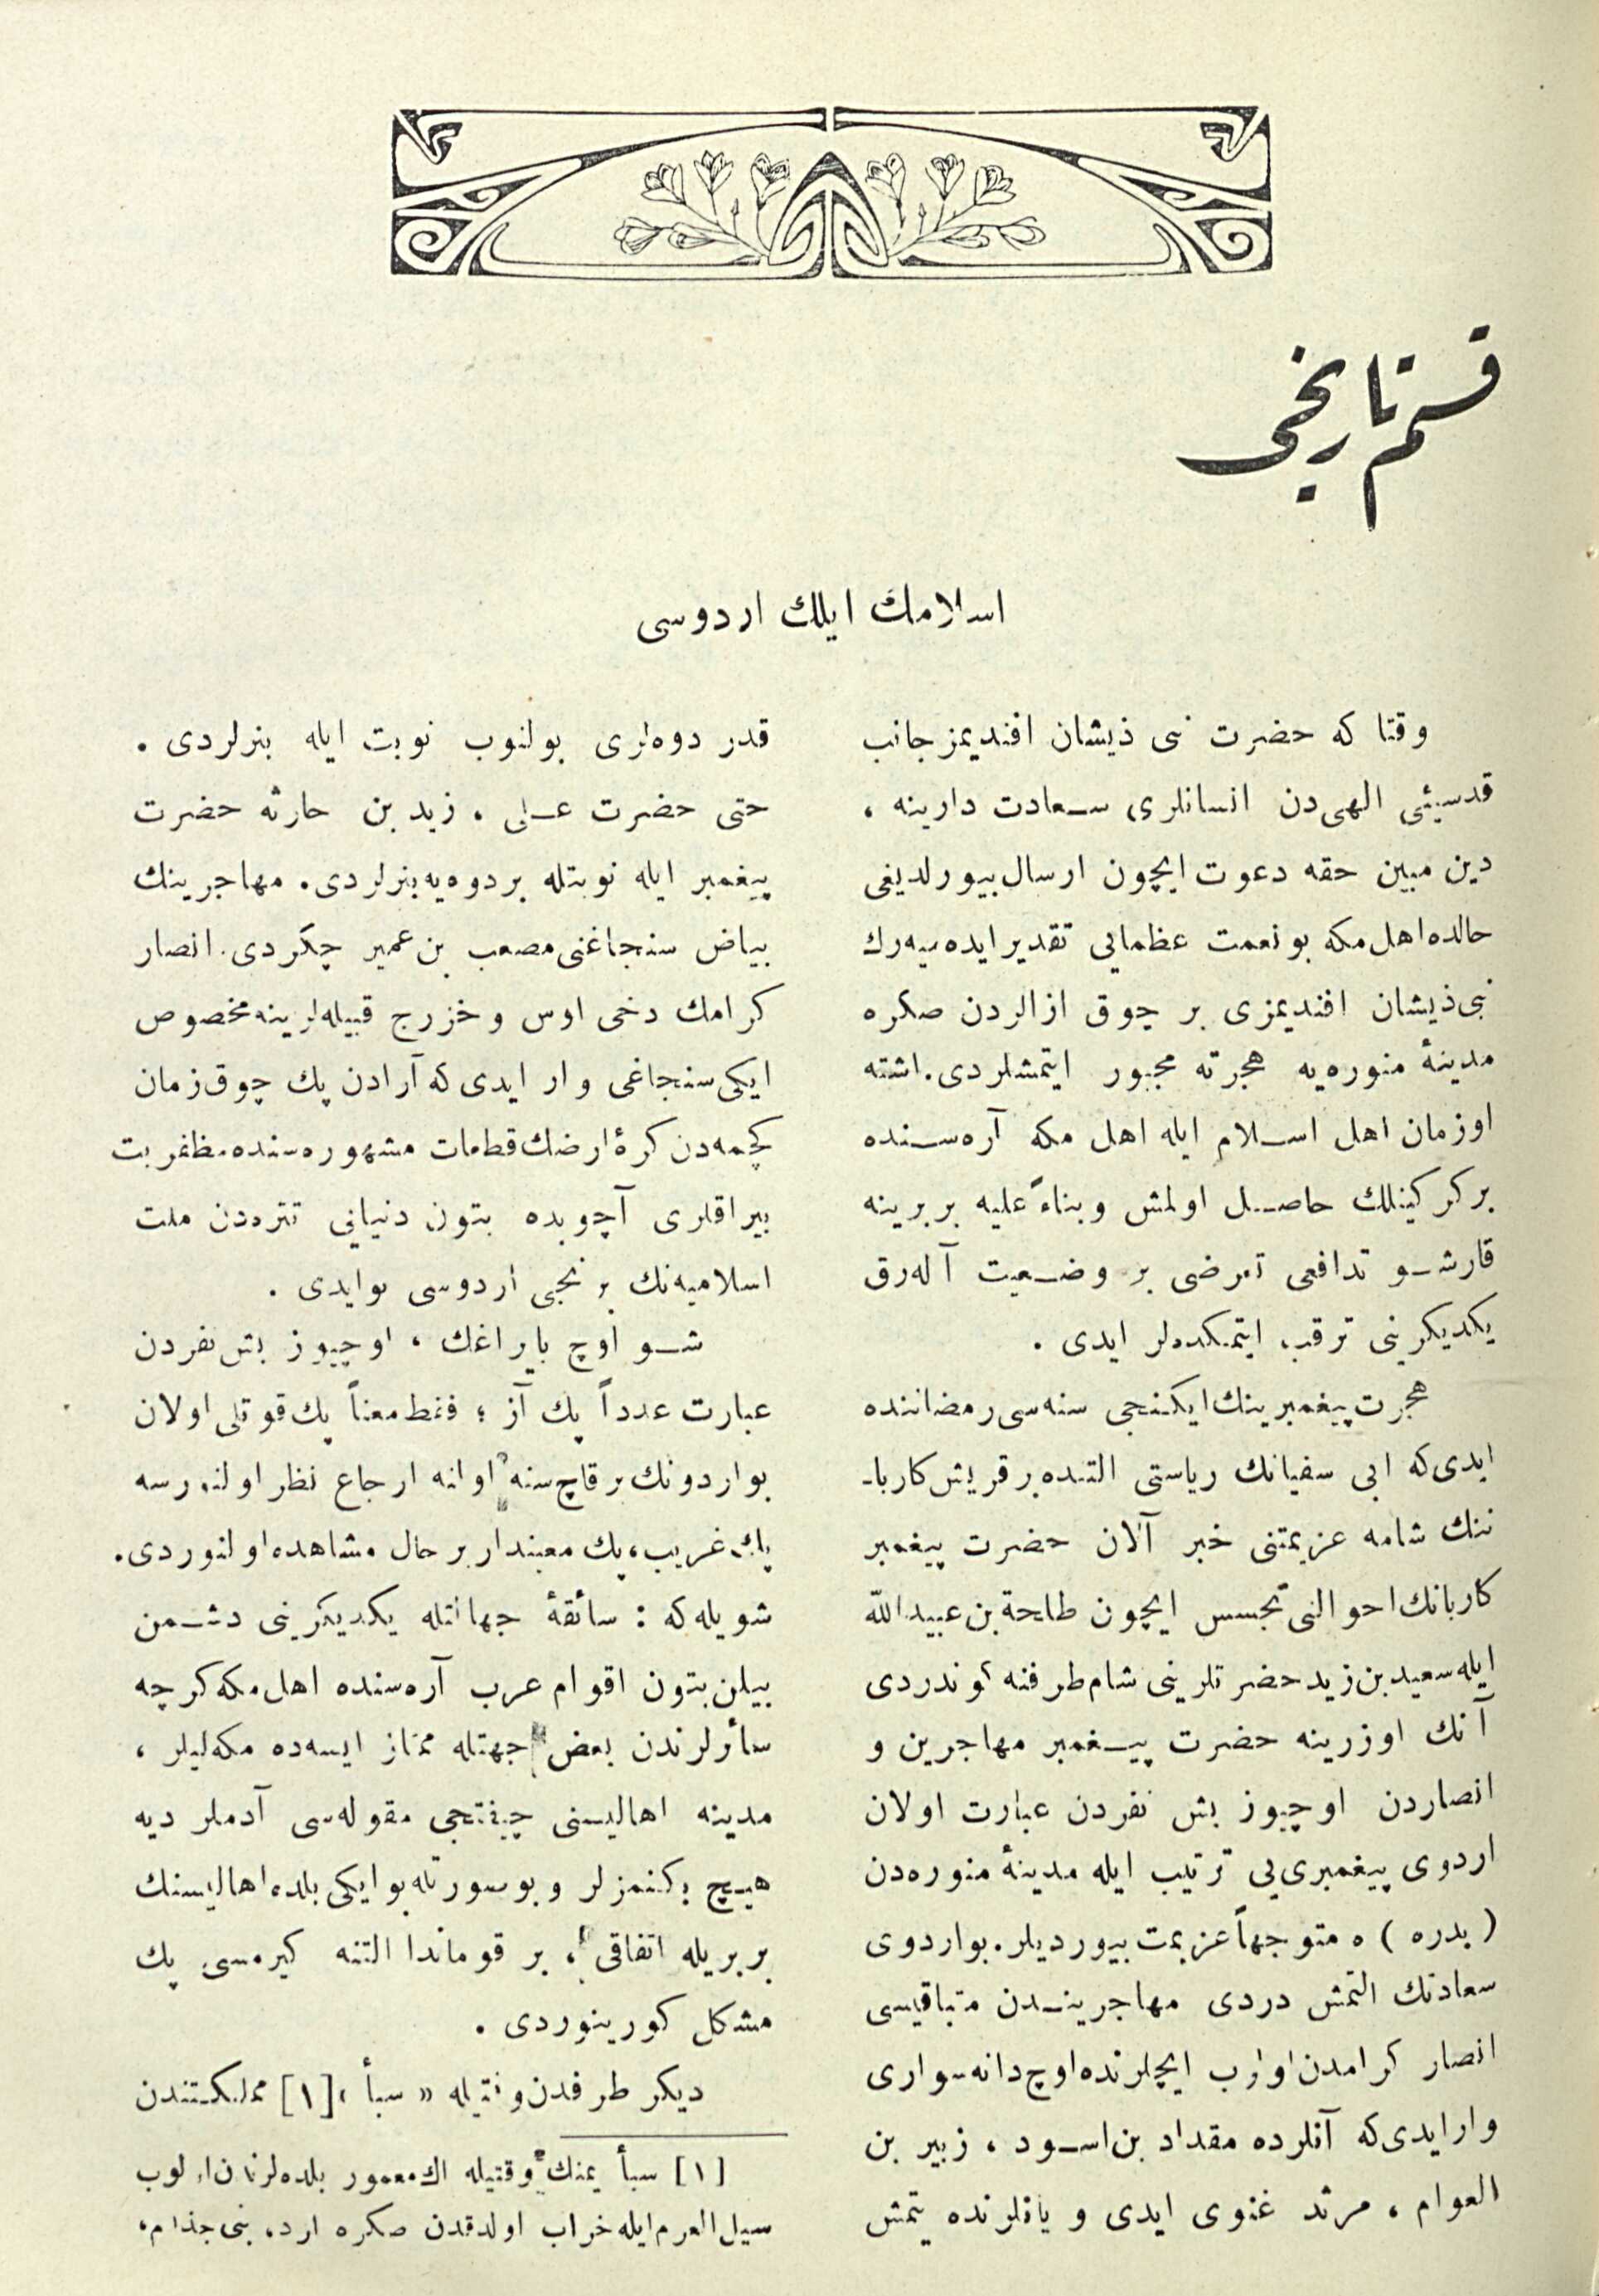 قسم تاریخی
اسلامك ایلك اردوسی
وقتا كه حضرت نبی ذیشان افندیمز جانب
قدسیئی الهی‌دن انسانلری سعادت دارینه ،
دین مبین حقه دعوت ایچون ارسال بیورلدیغی
حالده اهل مكه بو نعمت عظمایی تقدیر ایده‌میه‌رك
نبی ذیشان افندیمزی بر چوق ازالردن صكره
مدینۀ منوره‌یه هجرته مجبور ایتمشلردی. اشته
او زمان اهل اسلام ایله اهل مكه آره‌سنده
بر كركینلك حاصل اولمش و بناءً علیه بربرینه
قارشو تدافعی تعرضی بر وضعیت آله‌رق
یكدیكرینی ترقب ایتمكده‌لر ایدی .
هجرت پیغمبرینك ایكنجی سنه‌سی رمضاننده
ایدی كه ابی سفیانك ریاستی التنده بر قریش كاربا-
ننك شامه عزیمتنی خبر آلان حضرت پیغمبر
كاربانك احوالنی تجسس ایچون طلحة بن عبیدالله
ایله سعید بن زید حضرتلرینی شام طرفنه كوندردی
آنك اوزرینه حضرت پیغمبر مهاجرین و
انصاردن اوچیوز بش نفردن عبارت اولان
اردوی پیغمبری‌یی ترتیب ایله مدینۀ منوره‌دن
( بدره ) ه متوجهاً عزیمت بیوردیلر. بو اردوی
سعادتك التمش دردی مهاجریندن متباقیسی
انصار كرامدن اولوب ایچلرنده اوچ دانه سواری
وار ایدی كه آنلرده مقداد بن اسود ، زبیر بن
العوام ، مرثد غنوی ایدی و یانلرنده یتمش
قدر دوه‌لری بولنوب نوبت ایله بنرلردی .
حتی حضرت علی ، زید بن حارثه حضرت
پیغمبر ایله نوبتله بر دوه‌یه بنرلردی. مهاجرینك
بیاض سنجاغنی مصعب بن عمیر چكردی. انصار
كرامك دخی اوس و خزرج قبیله‌لرینه مخصوص
ایكی سنجاغی وار ایدی كه آرادن پك چوق زمان
كچمه‌دن كرۀ ارضك قطعات مشهوره‌سنده مظفریت
بیراقلری آچوبده بتون دنیایی تتره‌دن ملت
اسلامیه‌نك برنجی اردوسی بو ایدی .
شو اوچ بایراغك ، اوچیوز بش نفردن
عبارت عدداً پك آز ؛ فقط معناً پك قوتلی اولان
بو اردونك بر قاچ سنه اولنه ارجاع نظر اولنورسه
پك غریب، پك معنیدار بر حال مشاهده اولنوردی.
شویله كه : سائقۀ جهالتله یكدیكرینی دشمن
بیلن بتون اقوام عرب آره‌سنده اهل مكه كرچه
سائرلرندن بعض جهتله ممتاز ایسه‌ده مكه‌لیلر ،
مدینه اهالیسنی چیفتجی مقوله‌سی آدملر دیه
هیچ بكنمزلر و بو صورتله بو ایكی بلده اهالیسنك
بربریله اتفاقی ، بر قوماندا التنه كیرمسی پك
مشكل كورینوردی .
دیكر طرفدن وقتیله « سبأ » [١] مملكتندن
[١] سبأ یمنك وقتیله اك معمور بلده‌لرندن اولوب
سیل العرم ایله خراب اولدقدن صكره ازد، بنی جذام،